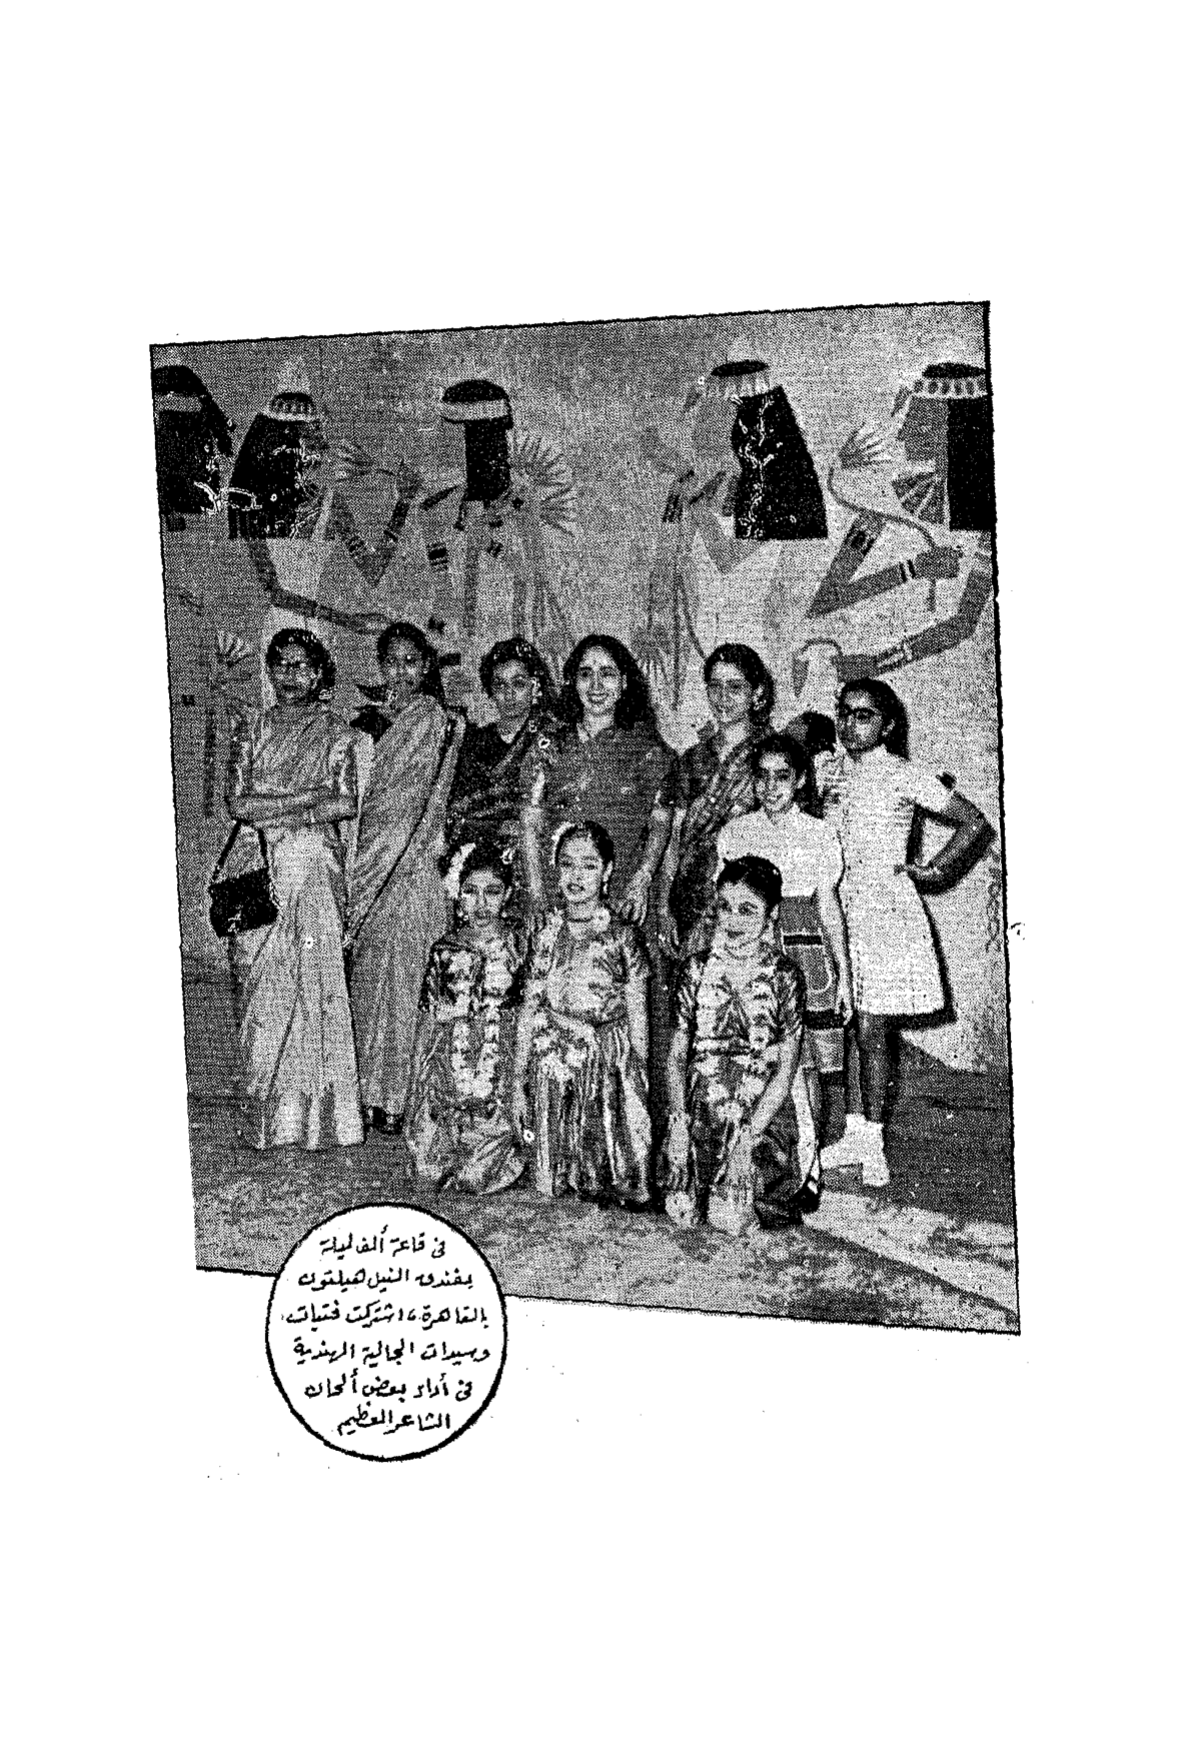 فى قاعة ألف ليلة
بفندق النيل هيلتون
بالقاهرة، اشتركت فتيات
وسيدات الجالية الهندية
فى أداء بعض ألحان
الشاعر العظيم